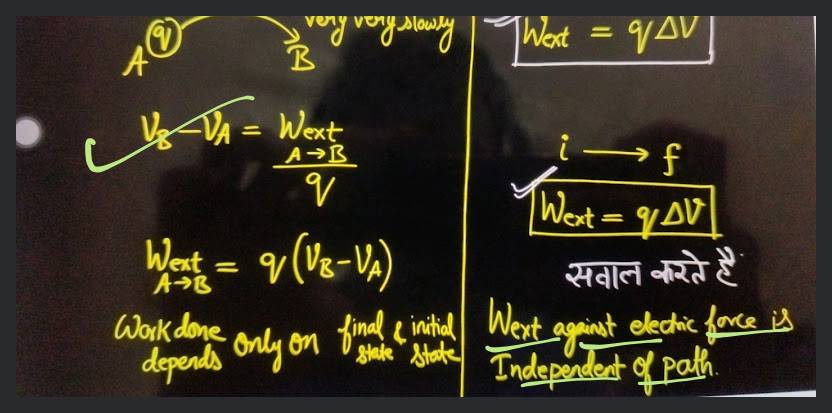 very very slowly
A q B
V_B - V_A = W_ext A→B / q
W_ext A→B = q (V_B - V_A)
Work done depends only on final & initial state state
W_ext = q ΔV
i → f
W_ext = q ΔV
सवाल करते हैं
Wext against electric force is
Independent of path.